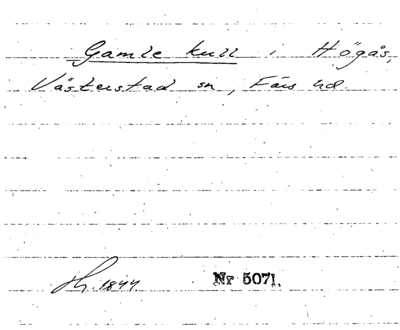 Gamle kull i Högås,
Västerstad sn, Färs hd.
1844 Nr 5071.